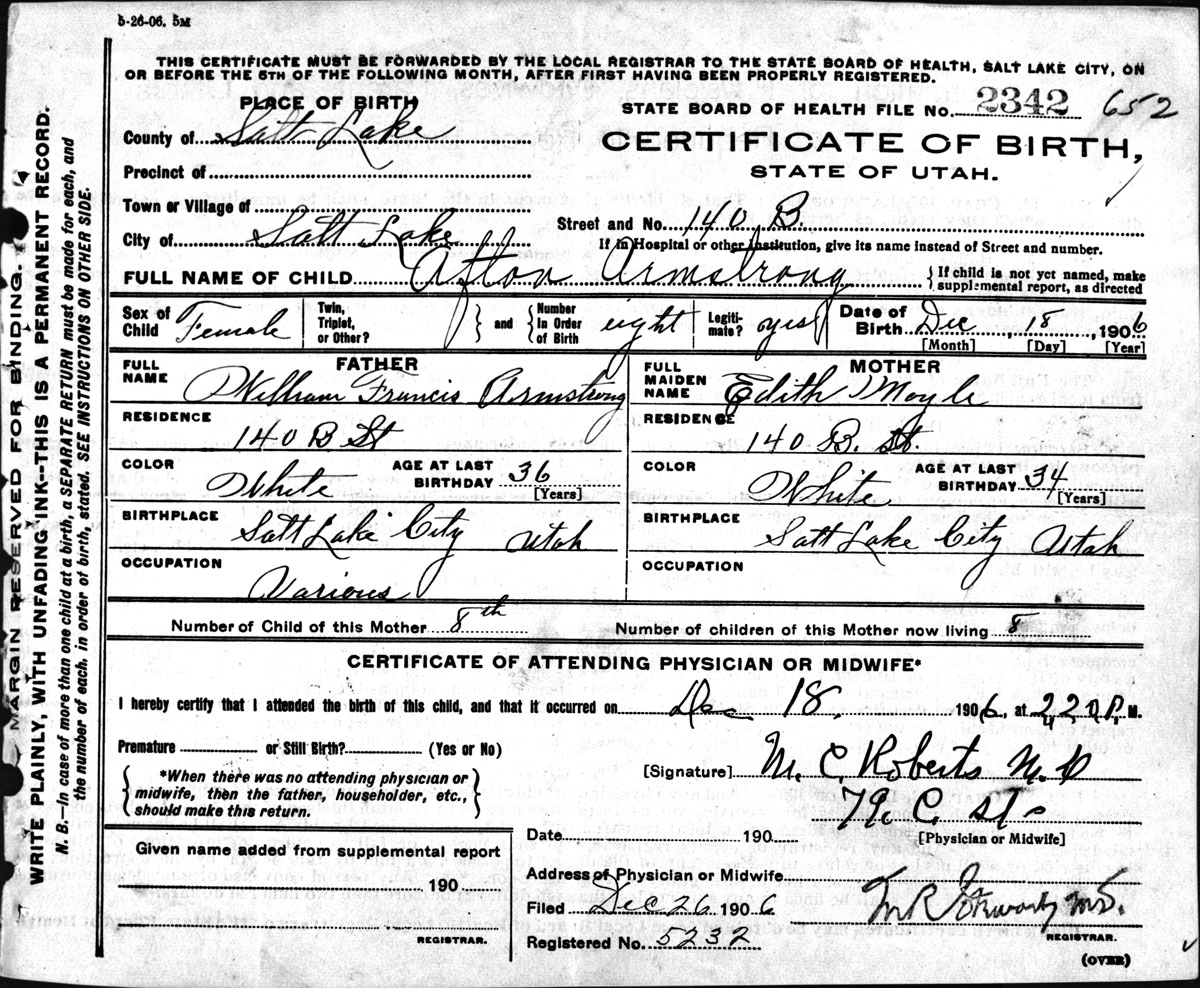 5-26-06. 5M
THIS CERTIFICATE MUST BE FORWARDED BY THE LOCAL REGISTRAR TO THE STATE BOARD OF HEALTH, SALT LAKE CITY, ON
OR BEFORE THE 5TH OF THE FOLLOWING MONTH, AFTER FIRST HAVING BEEN PROPERLY REGISTERED.
PLACE OF BIRTH
STATE BOARD OF HEALTH FILE No. 2342 652
County of Salt Lake
CERTIFICATE OF BIRTH,
STATE OF UTAH.
Precinct of
Town or Village of
Street and No. 140 B.
City of Salt Lake
If in Hospital or other Institution, give its name instead of Street and number.
FULL NAME OF CHILD Afton Armstrong
{If child is not yet named, make
supplemental report, as directed
Sex of Child Female
Twin, Triplet, or Other?
} and {
Number in Order of Birth eight
Legitimate? yes
Date of Birth Dec 18, 1906
[Month] [Day] [Year]
FATHER
FULL NAME William Francis Armstrong
RESIDENCE 140 B St
COLOR White
AGE AT LAST BIRTHDAY 36 [Years]
BIRTHPLACE Salt Lake City Utah
OCCUPATION Various
MOTHER
FULL MAIDEN NAME Edith Moyle
RESIDENCE 140 B. st.
COLOR White
AGE AT LAST BIRTHDAY 34 [Years]
BIRTHPLACE Salt Lake City Utah
OCCUPATION
Number of Child of this Mother 8th
Number of children of this Mother now living 8
CERTIFICATE OF ATTENDING PHYSICIAN OR MIDWIFE*
I hereby certify that I attended the birth of this child, and that it occurred on Dec 18, 1906, at P. M.
Premature or Still Birth? (Yes or No)
{*When there was no attending physician or
midwife, then the father, householder, etc.,
should make this return.}
[Signature] M. C. Roberts M. D
79. C. st.
[Physician or Midwife]
Date 190
Given name added from supplemental report
190
REGISTRAR.
Address of Physician or Midwife
Filed Dec 26 1906
M.D.
REGISTRAR.
Registered No. 5232
(OVER)
MARGIN RESERVED FOR BINDING.
WRITE PLAINLY, WITH UNFADING INK--THIS IS A PERMANENT RECORD.
N. B.—In case of more than one child at a birth, a SEPARATE RETURN must be made for each, and
the number of each, in order of birth, stated. SEE INSTRUCTIONS ON OTHER SIDE.